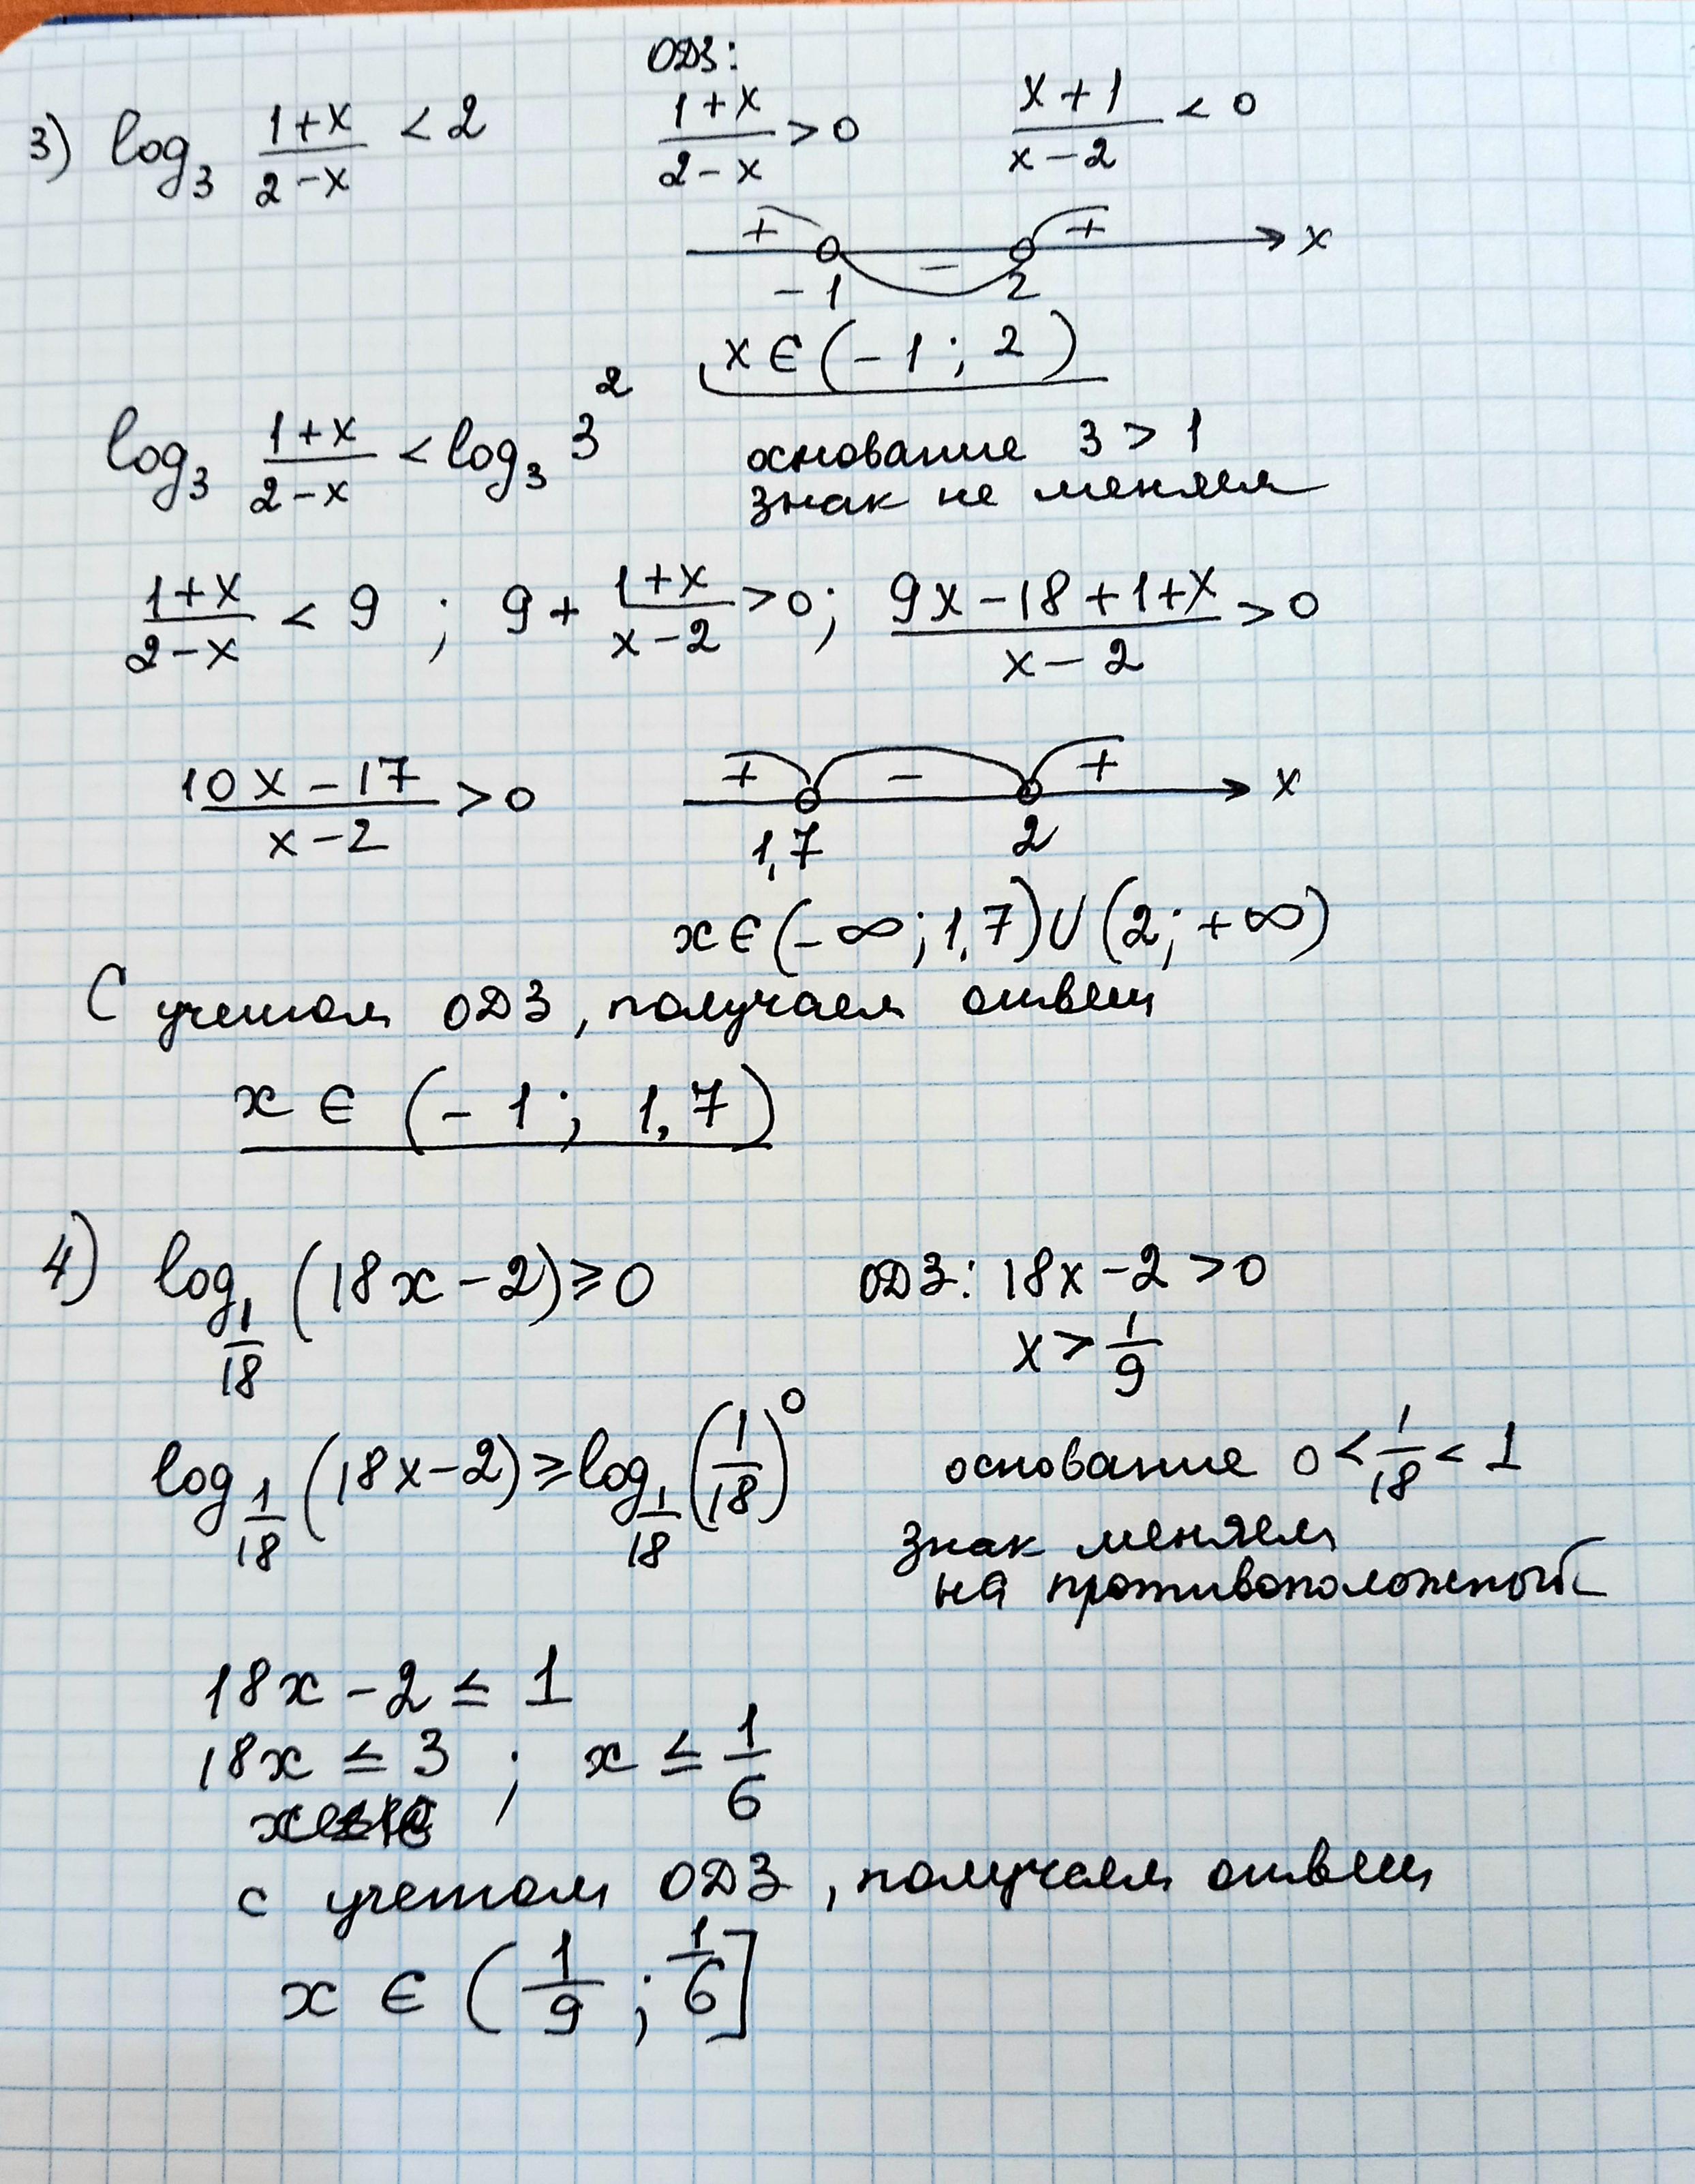 ОДЗ:
3) log₃ (1+x)/(2-x) < 2   (1+x)/(2-x) > 0   (x+1)/(x-2) < 0
+ - + x
-1 2
x ∈ (-1; 2)
log₃ (1+x)/(2-x) < log₃ 3²   основание 3 > 1
знак не меняем
(1+x)/(2-x) < 9 ; 9 + (1+x)/(x-2) > 0; (9x-18+1+x)/(x-2) > 0
(10x-17)/(x-2) > 0   + - + x
1,7 2
x ∈ (-∞; 1,7) ∪ (2; +∞)
С учетом ОДЗ, получаем ответ
x ∈ (-1; 1,7)
4) log_{1/18} (18x-2) ≥ 0   ОДЗ: 18x-2 > 0
x > 1/9
log_{1/18} (18x-2) ≥ log_{1/18} (1/18)⁰   основание 0 < 1/18 < 1
знак меняем
на противоположный
18x - 2 ≤ 1
18x ≤ 3 ; x ≤ 1/6
с учетом ОДЗ, получаем ответ
x ∈ (1/9 ; 1/6]